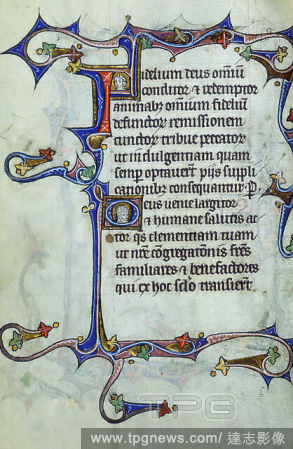 Fidelium deus omiū
conditor & redemptor
animabz omiium fideliū
defunctor remissionem
cunctor tribue peccator
ut indulgentiam quam
semp optaverūt pijs suppli
cationibz consequantur. P.
Deus uenie largitor
& humane salutis ac
tor qs clementiam tuam
ut nr̄e cōgregatonis fr̄es
familiares & benefactores
qui ex hoc sclo transierūt.
TPG
www.tpgnews.com/ 達志影像